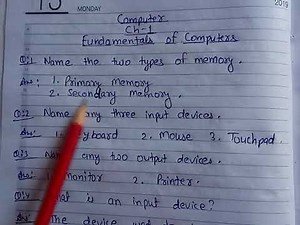 MONDAY
2019
Computer
Ch-1
Fundamentals of Computers
Q:1 Name the two types of memory.
Ans: 1. Primary Memory
2. Secondary Memory.
Q:2 Name any three input devices.
Ans: 1. Keyboard 2. Mouse 3. Touchpad.
Q:3 Name any two output devices.
Ans: 1. Monitor 2. Printer.
What is an input device?
The device